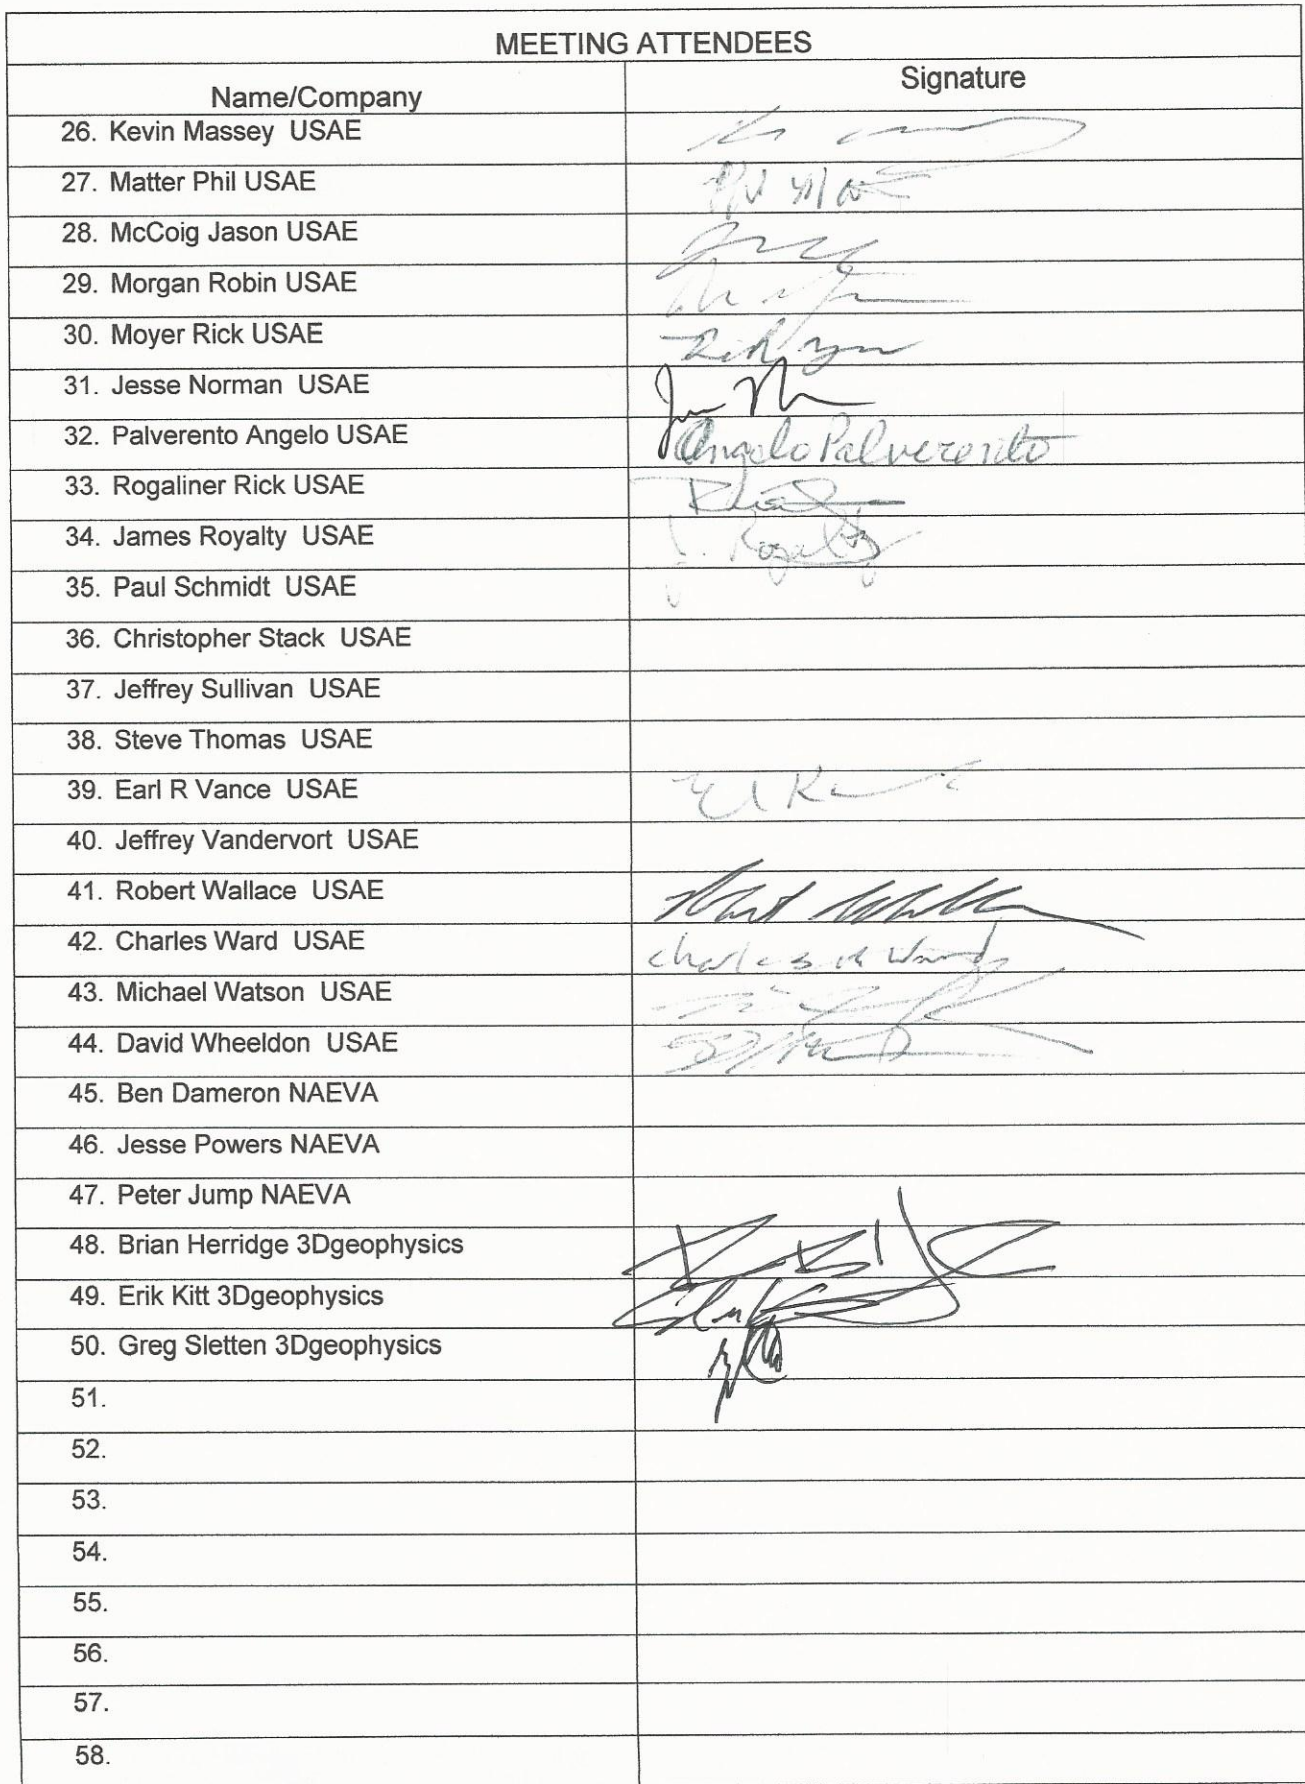 MEETING ATTENDEES
Name/Company
Signature
26. Kevin Massey USAE
27. Matter Phil USAE
28. McCoig Jason USAE
29. Morgan Robin USAE
30. Moyer Rick USAE
31. Jesse Norman USAE
32. Palverento Angelo USAE Angelo Palverento
33. Rogaliner Rick USAE
34. James Royalty USAE J. Royalty
35. Paul Schmidt USAE
36. Christopher Stack USAE
37. Jeffrey Sullivan USAE
38. Steve Thomas USAE
39. Earl R Vance USAE
40. Jeffrey Vandervort USAE
41. Robert Wallace USAE
42. Charles Ward USAE Charles Ward
43. Michael Watson USAE
44. David Wheeldon USAE
45. Ben Dameron NAEVA
46. Jesse Powers NAEVA
47. Peter Jump NAEVA
48. Brian Herridge 3Dgeophysics
49. Erik Kitt 3Dgeophysics
50. Greg Sletten 3Dgeophysics
51.
52.
53.
54.
55.
56.
57.
58.